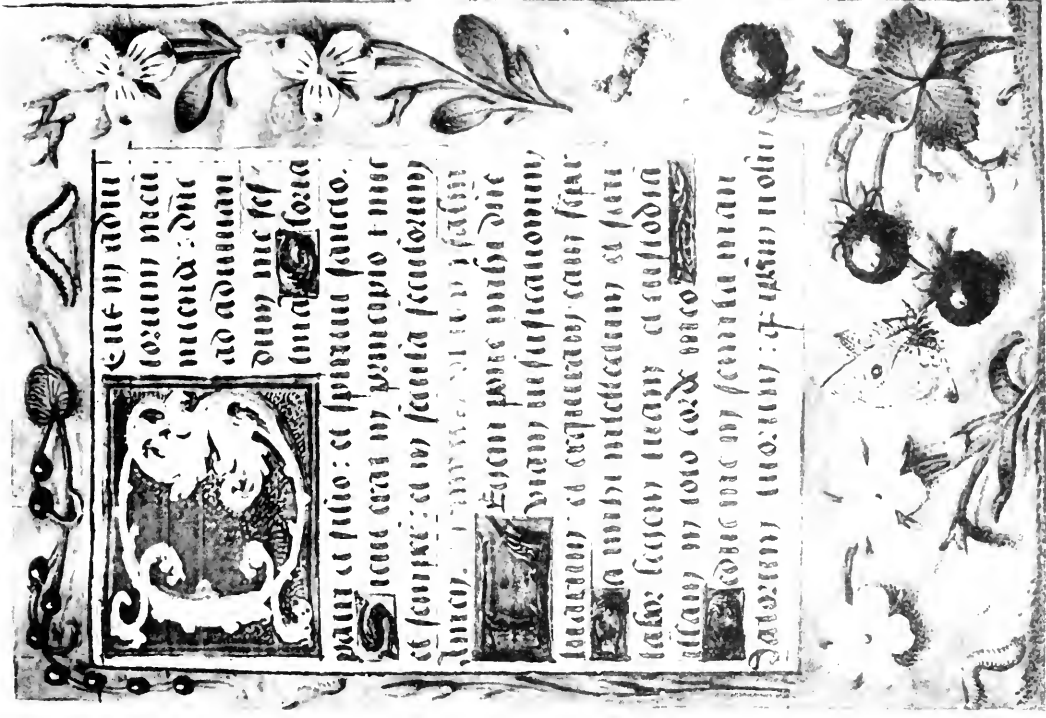 Deus in adiu
torium meu
intende: dne
ad adiuuan
dum me fes
tina Gloria
patri et filio: et spiritui sancto.
Sicut erat in principio et nunc
et semper: et in secula seculorum
Amen.
Legem pone michi dne
viam iustificationum
tuarum: et exquiram eam semper
Da michi intellectum et scru
tabor legem tuam et custodia
illam in toto corde meo
Deduc me in semita man
datorum tuorum: q ipsam volui